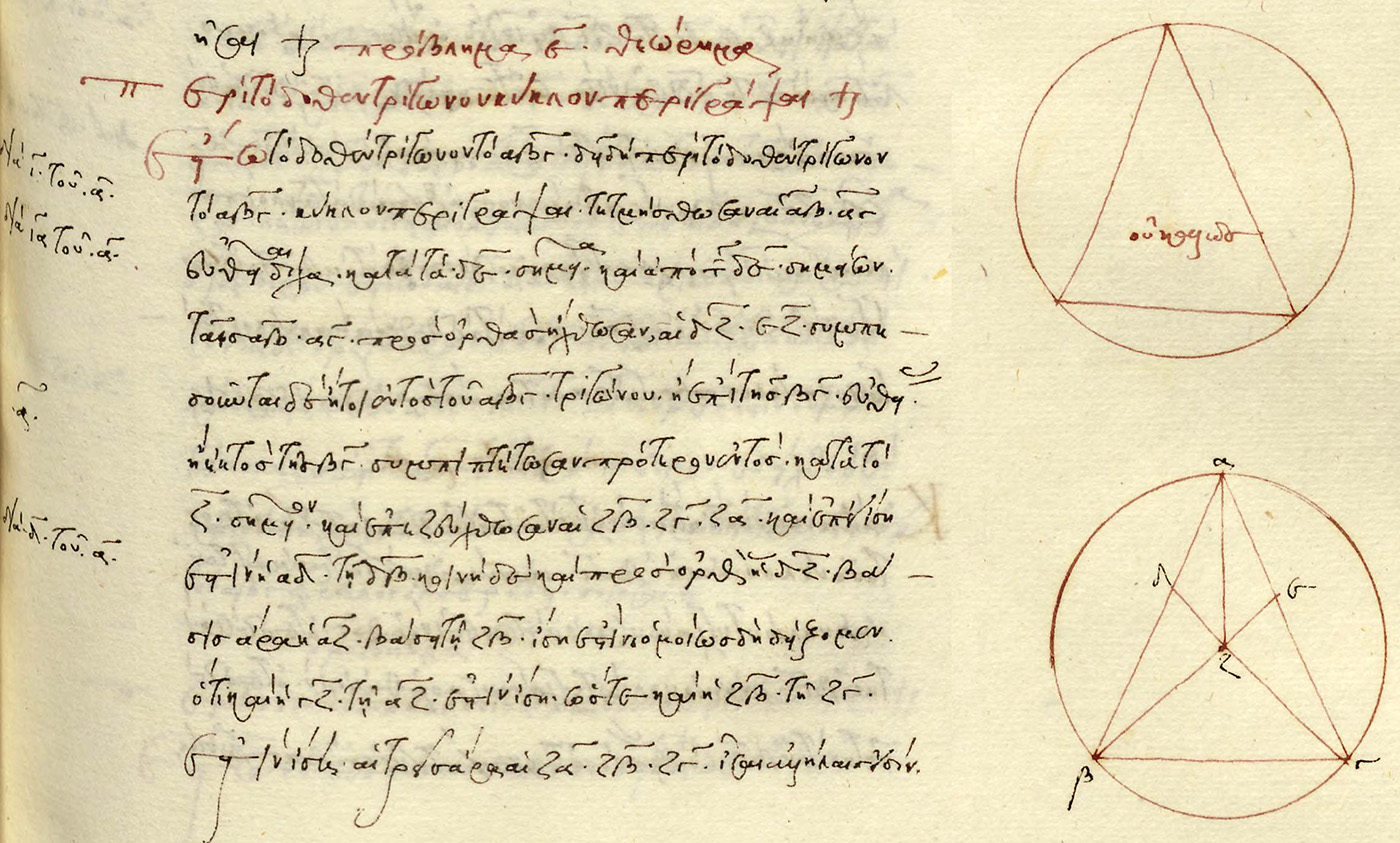 πρόβλημα ε̅. θεώρημα
Περὶ τὸ δοθὲν τρίγωνον κύκλον περιγράψαι
Ἔστω τὸ δοθὲν τρίγωνον τὸ αβγ· δεῖ δὴ περὶ τὸ δοθὲν τρίγωνον
τὸ αβγ· κύκλον περιγράψαι· τετμήσθωσαν αἱ αβ· αγ
εὐθεῖαι δίχα· κατὰ τὰ· δε· σημεῖα· καὶ ἀπὸ τῶν δε· σημείων.
ταῖς αβ· αγ· πρὸς ὀρθὰς ἤχθωσαν, αἱ δζ· εζ· συμπε
σοῦνται δὲ ἤτοι ἐντὸς τοῦ αβγ· τριγώνου. ἢ ἐπὶ τῆς βγ· εὐθείας·
ἢ ἐκτὸς τῆς βγ· συμπιπτέτωσαν πρότερον ἐντὸς· κατὰ τὸ
ζ· σημεῖον· καὶ ἐπεζεύχθωσαν αἱ ζβ· ζγ· ζα· καὶ ἐπεὶ ἴση
ἐστὶν ἡ αδ· τῇ δβ· κοινὴ δὲ καὶ πρὸς ὀρθὰς ἡ δζ· βά
σις ἄρα ἡ αζ· βάσει τῇ ζβ· ἴση ἐστίν· ὁμοίως δὴ δείξομεν.
ὅτι καὶ ἡ γζ· τῇ αζ· ἐστὶν ἴση· ὥστε καὶ ἡ ζβ· τῇ ζγ·
ἐστὶν ἴση· αἱ τρεῖς ἄρα αἱ ζα· ζβ· ζγ· ἴσαι ἀλλήλαις εἰσίν.
α
δ
ε
ζ
β
γ